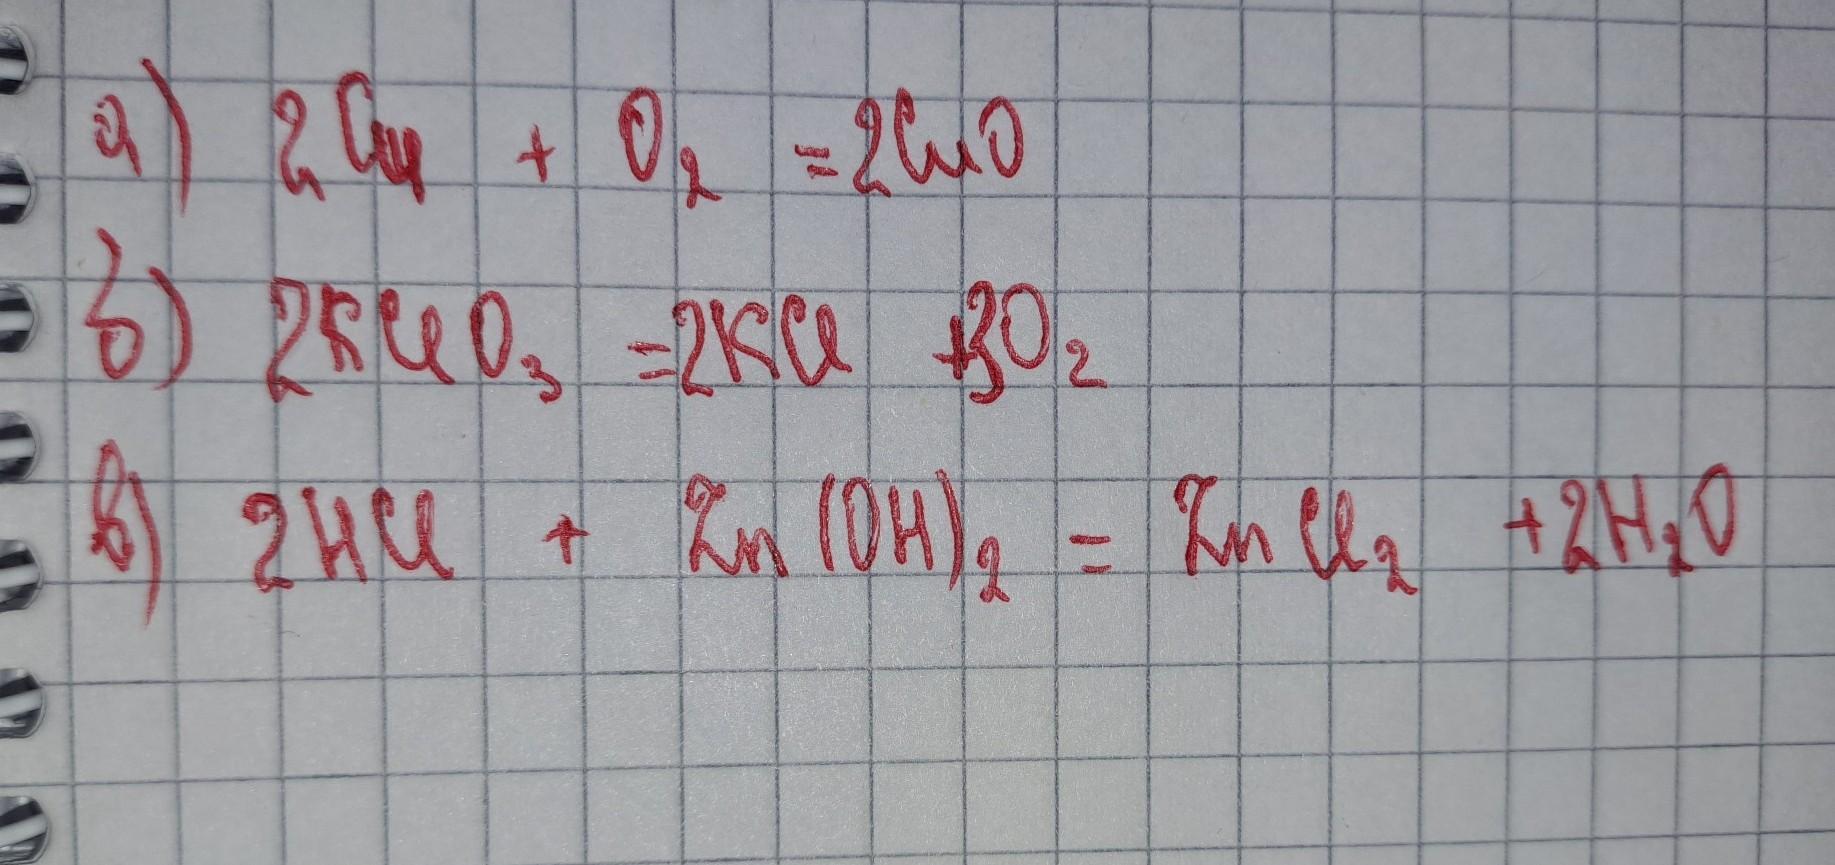 а) 2Cu + O₂ = 2CuO
б) 2KClO₃ = 2KCl + 3O₂
в) 2HCl + Zn(OH)₂ = ZnCl₂ + 2H₂O